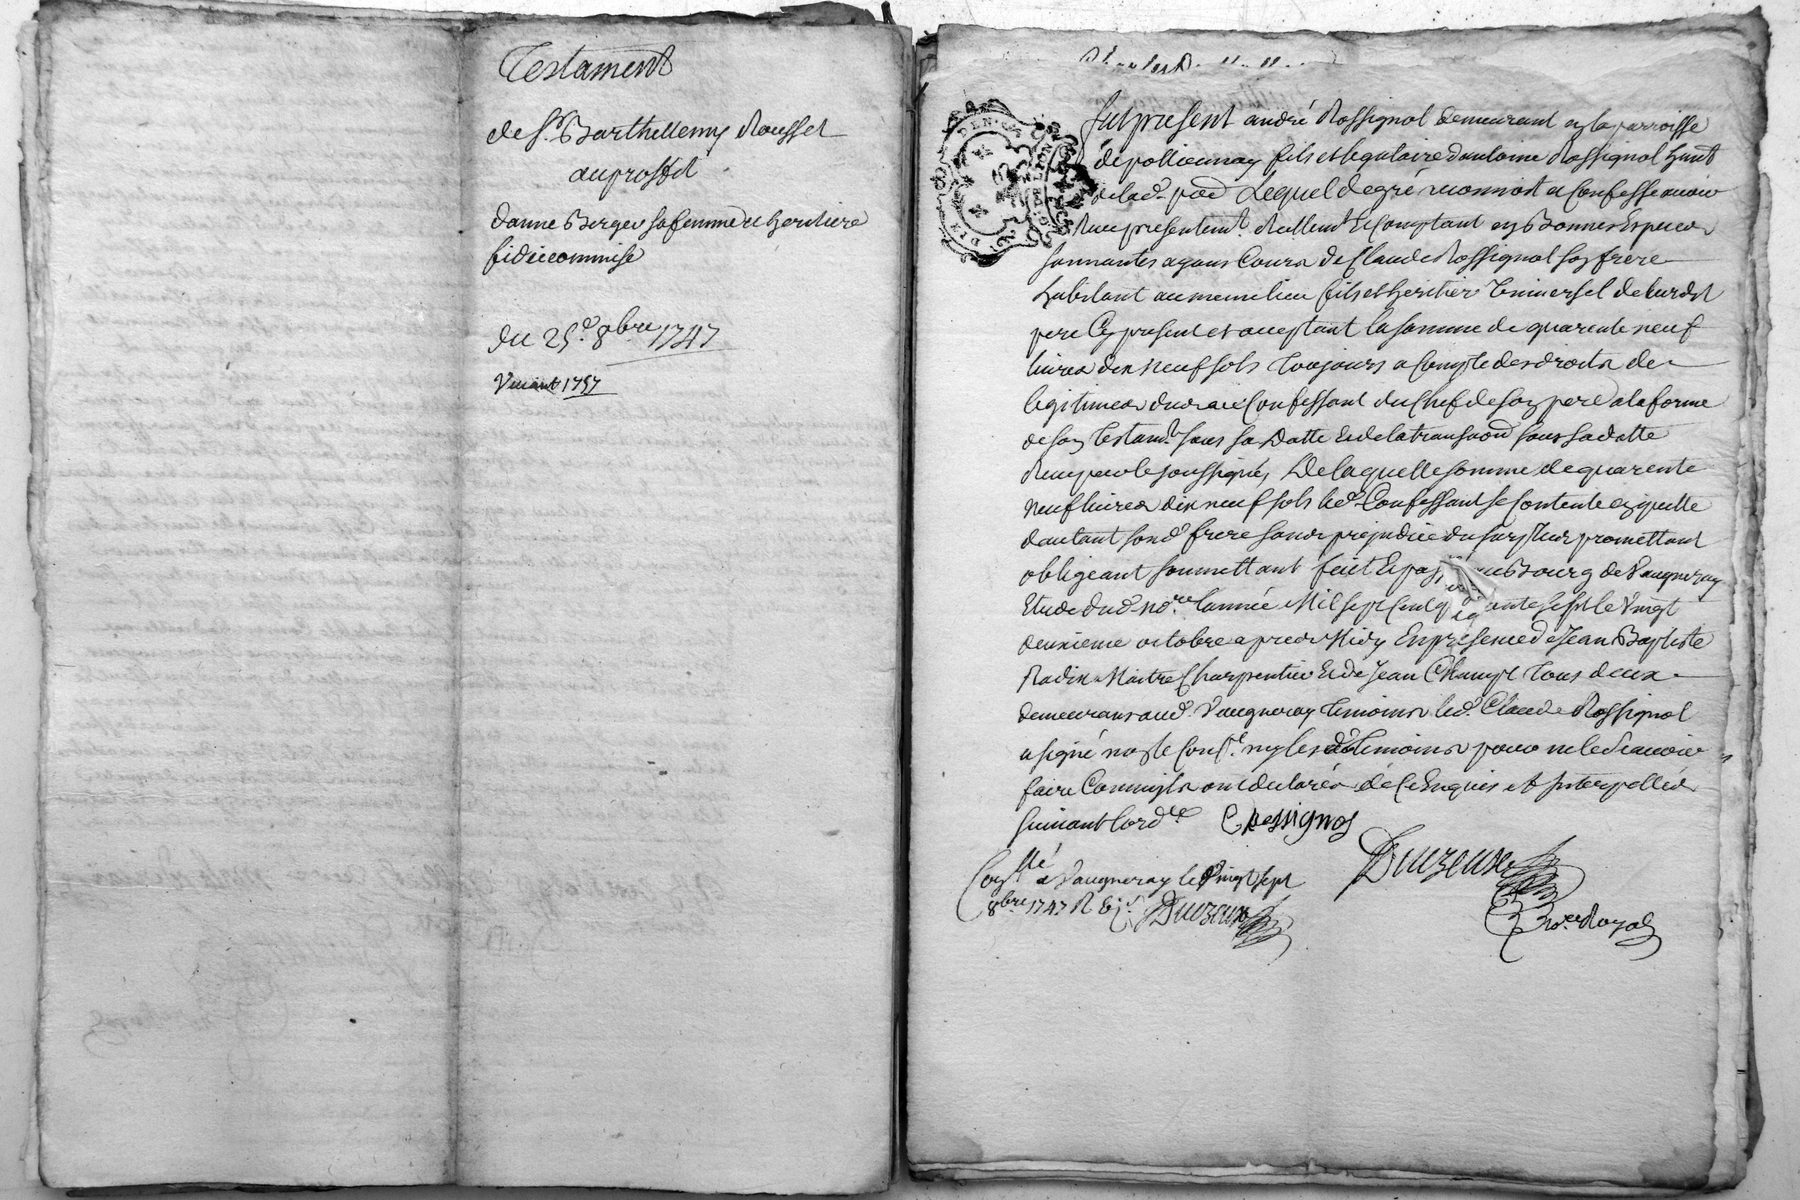 Testament
de Sr Barthellemy Rousset
au proffit
danne Berger sa femme et heritiere
fideicommise
du 25e 8bre 1747
Vacant 1757
Fut présent andré Rossignol demeurant en la parroisse
de pollionnay fils et legataire dantoine Rossignol
de lad. par. Lequel de gré reconnoit et Confesse avoir
Receu presentemt. Reellemt. et Comptant en Bonnes Especes
sonnantes ayans Cours de Claude Rossignol son frere
habitant au meme lieu fils et heritier universel de leurdt
pere Cy present et acceptant la somme de quarente neuf
livres dix neuf sols toujours a Compte des droits de
legitimes Confessant du Chef de son pere a la forme
de son testamt. sous sa Datte et de la transaon sous sa datte
Receu par le soussigné, De laquelle somme de quarente
neuf livres dix neuf sols led. Confessant se Contente en quitte
dautant sond. frere sans prejudice du surplus promettant
obligeant soumettant fait et pas au Bourg de Vaugneray
Etude dud. nore. lannée Mil sept Cent quarante sept le Vingt
deuxieme octobre apres Midy En presence de Jean Baptiste
Radix Maitre Charpentier et de Jean Champt tous deux
demeurans aud. Vaugneray temoins led. Claude Rossignol
a signé non le Conft. ny les dts temoins pour ne le scavoir
faire Comm ils ont declarés de Ce Enquis et Interpelles
suivant lordce C Rossignol
Conllé a Vaugneray le Vingt sept
8bre 1747 R Duzeux
Duzeux
Nore Royal